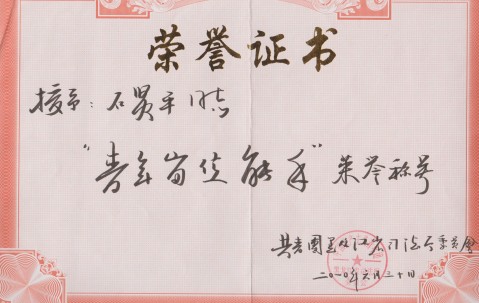 荣誉证书
授予:石昊平同志
"青年岗位能手"荣誉称号
共青团黑龙江省门诊委员会
二〇一〇年六月三十日